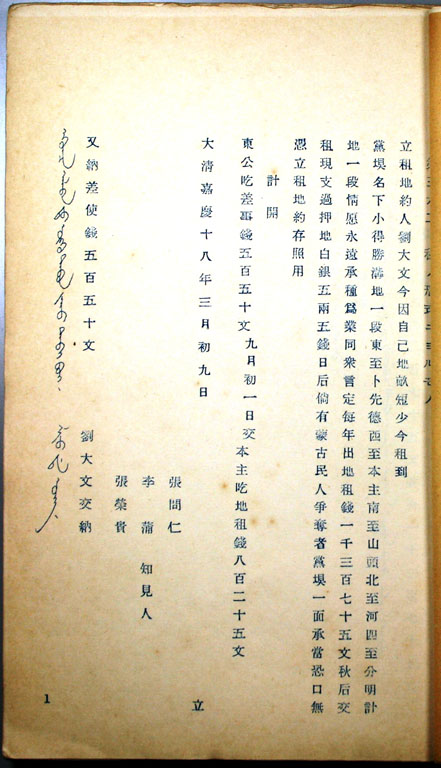 立租地約人劉大文今因自己地畝短少今租到
黨垻名下小得勝溝地一段東至卜先德西至本主南至山頭北至河四至分明計
地一段情愿永遠承種爲業同衆言定每年出地租錢一千三百七十五文秋后交
租現支過押地白銀五兩五錢日后倘有蒙古民人爭奪者黨垻一面承當恐口無
憑立租地約存照用
計開
東公吃差事錢五百五十文九月初一日交本主吃地租錢八百二十五文
大淸嘉慶十八年三月初九日
立
張問仁
李蒲 知見人
張榮貴
又納差使錢五百五十文
劉大文交納
1